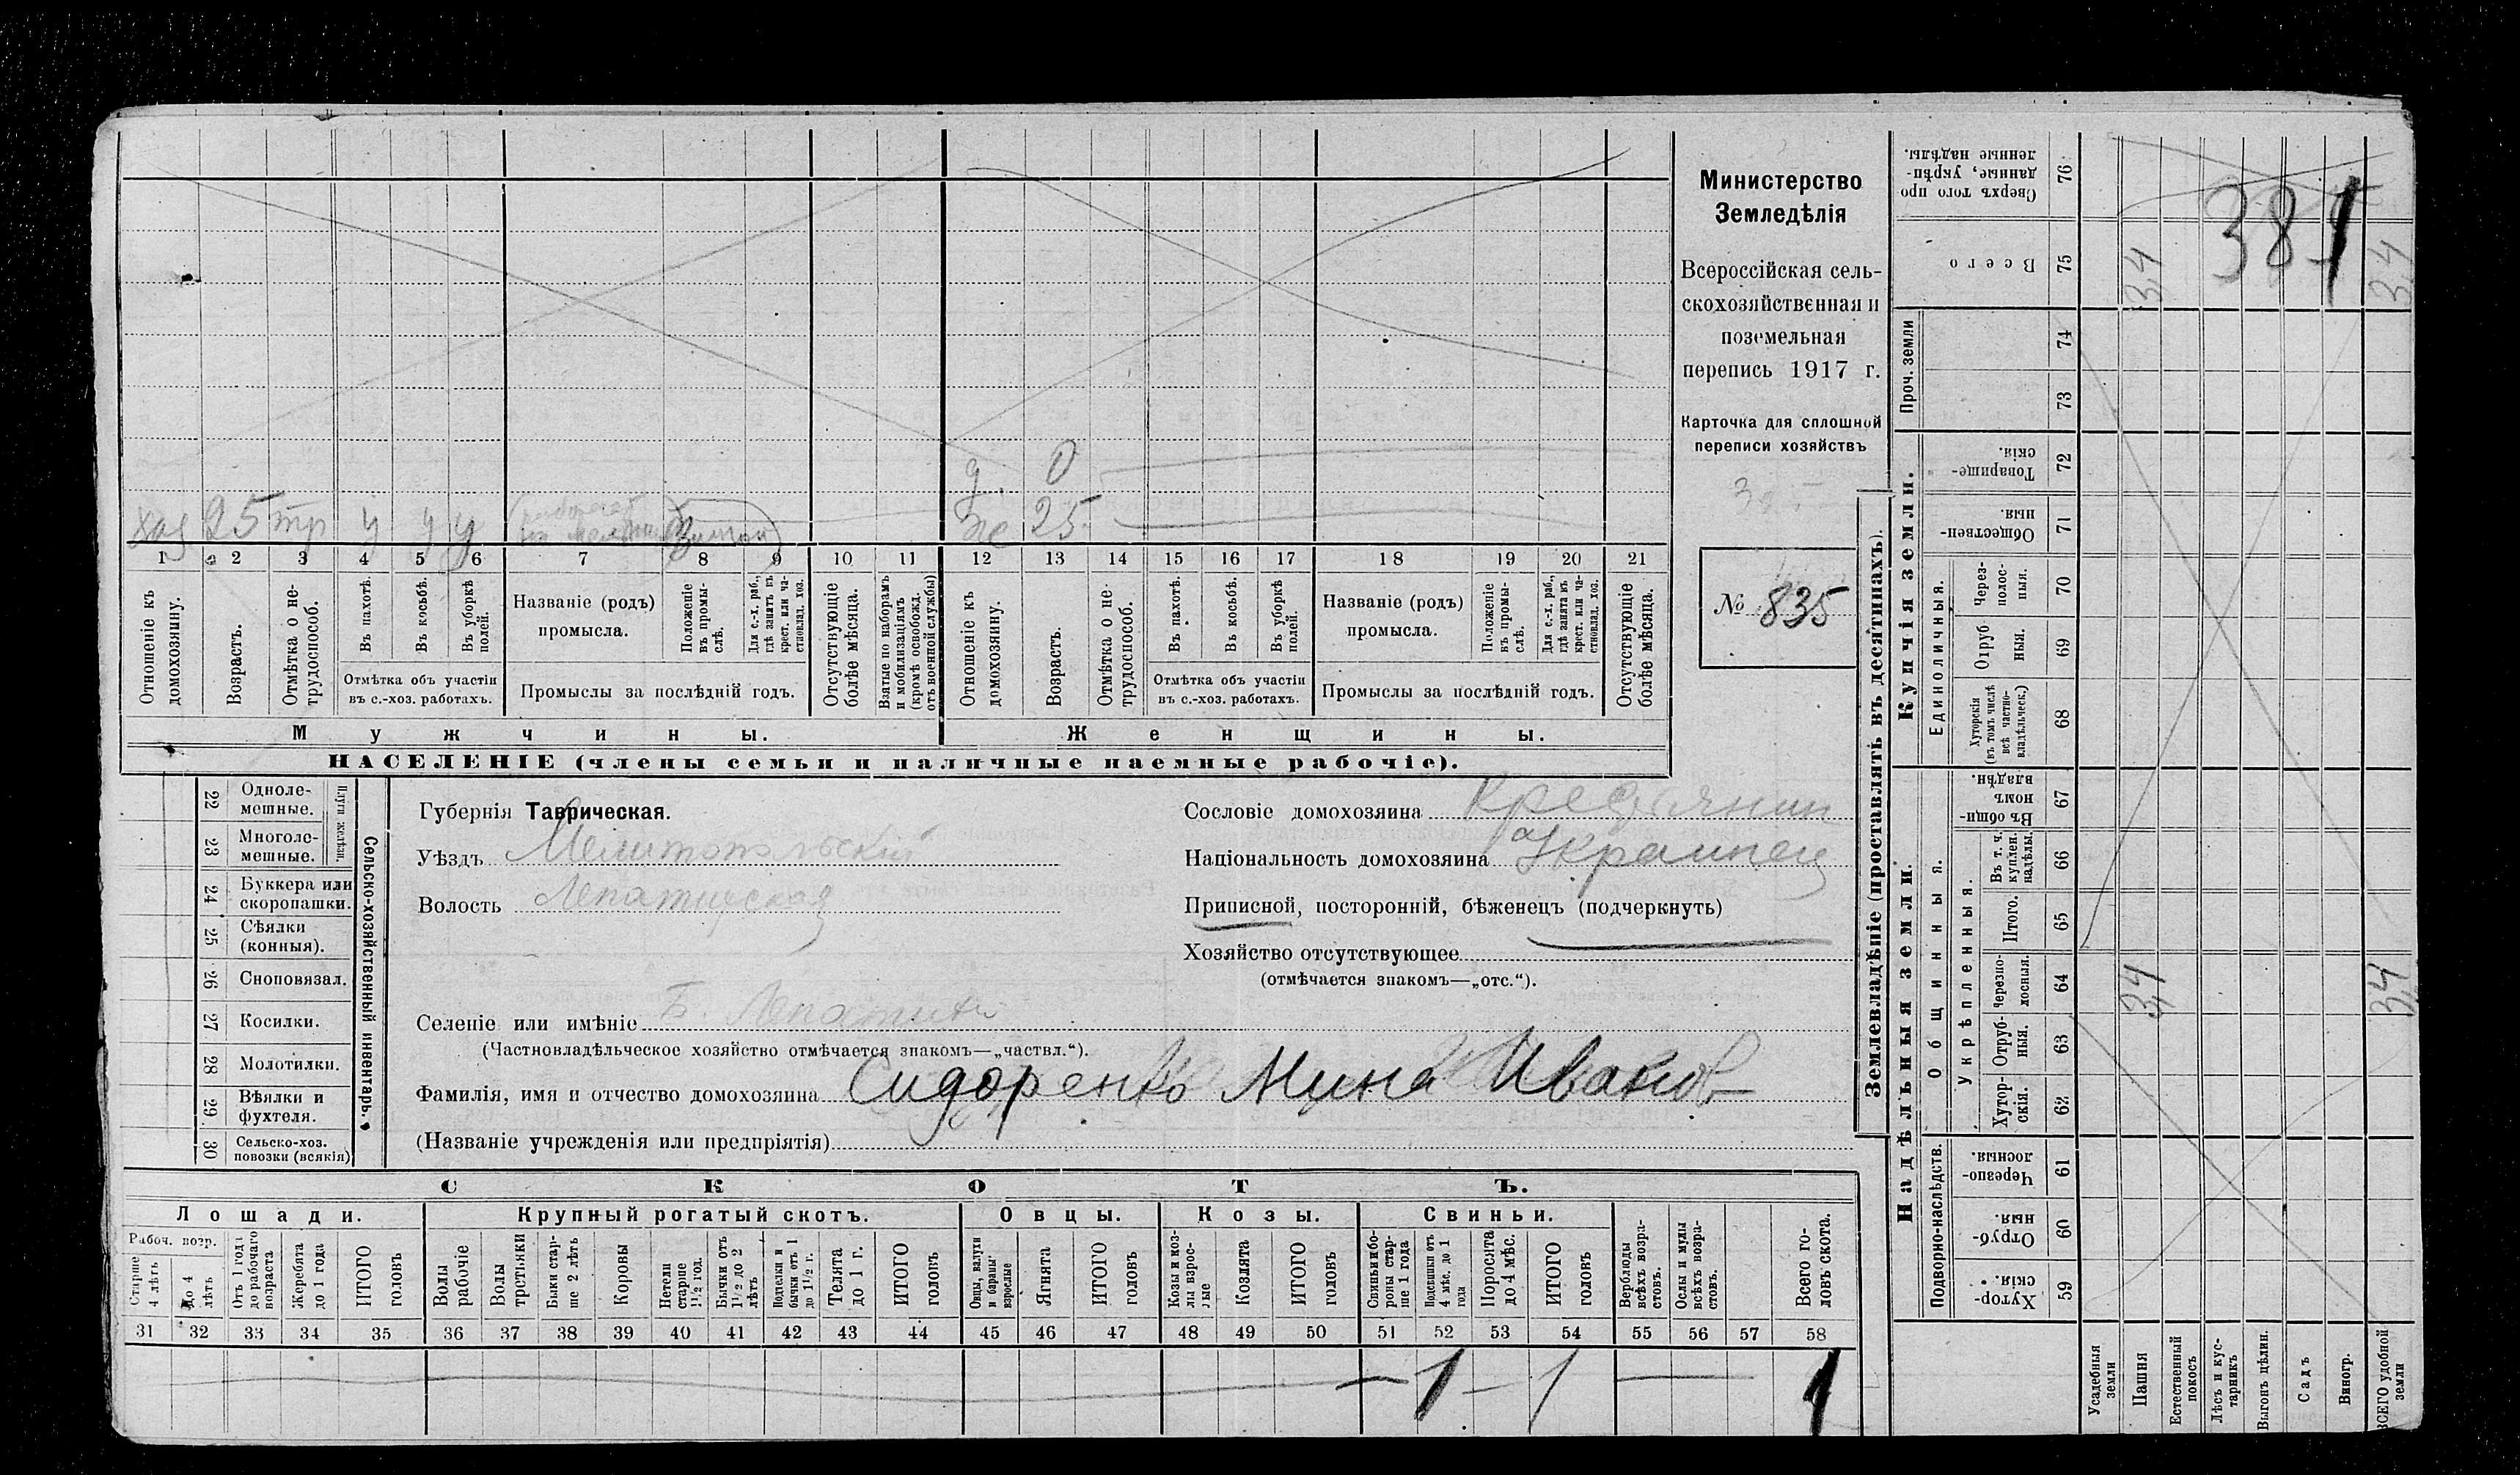 хоз 25 тр у у у
д. 0
же 25
1 2 3 4 5 6 7 8 9 10 11 12 13 14 15 16 17 18 19 20 21
Отношеніе къ домохозяину.
Возрастъ.
Отмѣтка о не-трудоспособ.
Въ пахотѣ.
Въ косьбѣ.
Въ уборкѣ полей.
Отмѣтка объ участіи
въ с.-хоз. работахъ.
Названіе (родъ)
промысла.
Положеніе въ промы-слѣ.
Для с.-х. раб., гдѣ занятъ въ крест. или ча-стновлад. хоз.
Промыслы за послѣдній годъ.
Отсутствующіе болѣе мѣсяца.
Взятые по наборамъ и мобилизаціямъ (кромѣ освобожд. отъ военной службы)
Отношеніе къ домохозяину.
Возрастъ.
Отмѣтка о не-трудоспособ.
Въ пахотѣ.
Въ косьбѣ.
Въ уборкѣ полей.
Отмѣтка объ участіи
въ с.-хоз. работахъ.
Названіе (родъ)
промысла.
Положеніе въ промы-слѣ.
Для с.-х. раб., гдѣ занята въ крест. или ча-стновлад. хоз.
Промыслы за послѣдній годъ.
Отсутствующіе болѣе мѣсяца.
Мужчины.
Женщины.
НАСЕЛЕНІЕ (члены семьи и наличные наемные рабочіе).
Министерство
Земледѣлія
Всероссійская сель-
скохозяйственная и
поземельная
перепись 1917 г.
Карточка для сплошной
переписи хозяйствъ
№ 835
22 Одноле-мешные.
23 Многоле-мешные.
Плуги желѣзн.
24 Буккера или скоропашки.
25 Сѣялки (конныя).
26 Сноповязал.
27 Косилки.
28 Молотилки.
29 Вѣялки и фухтеля.
30 Сельско-хоз. повозки (всякія)
Сельско-хозяйственный инвентарь.
Губернія Таврическая.
Уѣздъ Мелитопольскій
Волость Лепатихская
Селеніе или имѣніе Б. Лепатиха
(Частновладѣльческое хозяйство отмѣчается знакомъ—„частвл.“).
Фамилія, имя и отчество домохозяина Сидоренко Мина Иванов
(Названіе учрежденія или предпріятія)
Сословіе домохозяина Крестьянин
Національность домохозяина Украинец
Приписной, посторонній, бѣженецъ (подчеркнуть)
Хозяйство отсутствующее
(отмѣчается знакомъ—„отс.“).
СКОТЪ.
Лошади.
Крупный рогатый скотъ.
Овцы.
Козы.
Свиньи.
Рабоч. возр.
Старше 4 лѣтъ
до 4 лѣтъ
Отъ 1 года до рабочаго возраста
Жеребята до 1 года
ИТОГО головъ
Волы рабочіе
Волы третьяки
Быки стар-ше 2 лѣтъ
Коровы
Нетели старше 1½ год.
Бычки отъ 1½ до 2 лѣтъ
Подтелки и бычки отъ 1 до 1½ г.
Телята до 1 г.
ИТОГО головъ
Овцы, валухи и бараны взрослые
Ягнята
ИТОГО головъ
Козы и коз-лы взрос-лые
Козлята
ИТОГО головъ
Свиньи и бо-ровы стар-ше 1 года
Подсвинки отъ 4 мѣс. до 1 года
Поросята до 4 мѣс.
ИТОГО головъ
Верблюды всѣхъ возра-стовъ.
Ослы и мулы всѣхъ возра-стовъ.
Всего го-ловъ скота.
31 32 33 34 35 36 37 38 39 40 41 42 43 44 45 46 47 48 49 50 51 52 53 54 55 56 57 58
— 1 — 1 — 1
Землевладѣніе (проставлять въ десятинахъ).
Купчія земли.
Надѣльныя земли.
Сверхъ того про данные, укрѣп-ленные надѣлы. 76
Всего 75
34
381
34
Проч. земли
74
73
Товарище-скія. 72
Обществен-ныя. 71
Единоличныя.
Через-полос-ныя. 70
Отруб ныя. 69
Хуторскія (въ томъ числѣ всѣ частно-владѣльческ.) 68
Въ общи-номъ владѣн. 67
Общинныя.
Укрѣпленныя.
Въ т. ч. куплен. надѣлы. 66
Итого. 65
Черезпо-лосныя. 64
34
34
Отруб-ныя. 63
Хутор-скія. 62
Подворно-наслѣдств.
Черезпо-лосныя. 61
Отруб-ныя. 60
Хутор-скія. 59
Усадебныя земли
Пашня
Естественный покосъ
Лѣсъ и кус-тарникъ
Выгонъ цѣлин.
Садъ
Виногр.
ВСЕГО удобной земли